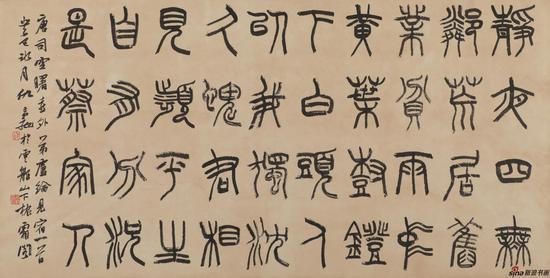 靜夜四無
鄰荒居舊
業貧雨中
黃葉樹鐙
下白頭人
以我獨沈
久媿君相
見頻平生
自有分況
是蔡家人
唐司空曙喜外弟盧綸見宿一首
月於雲龍山下棲霜閣
sina新浪收藏